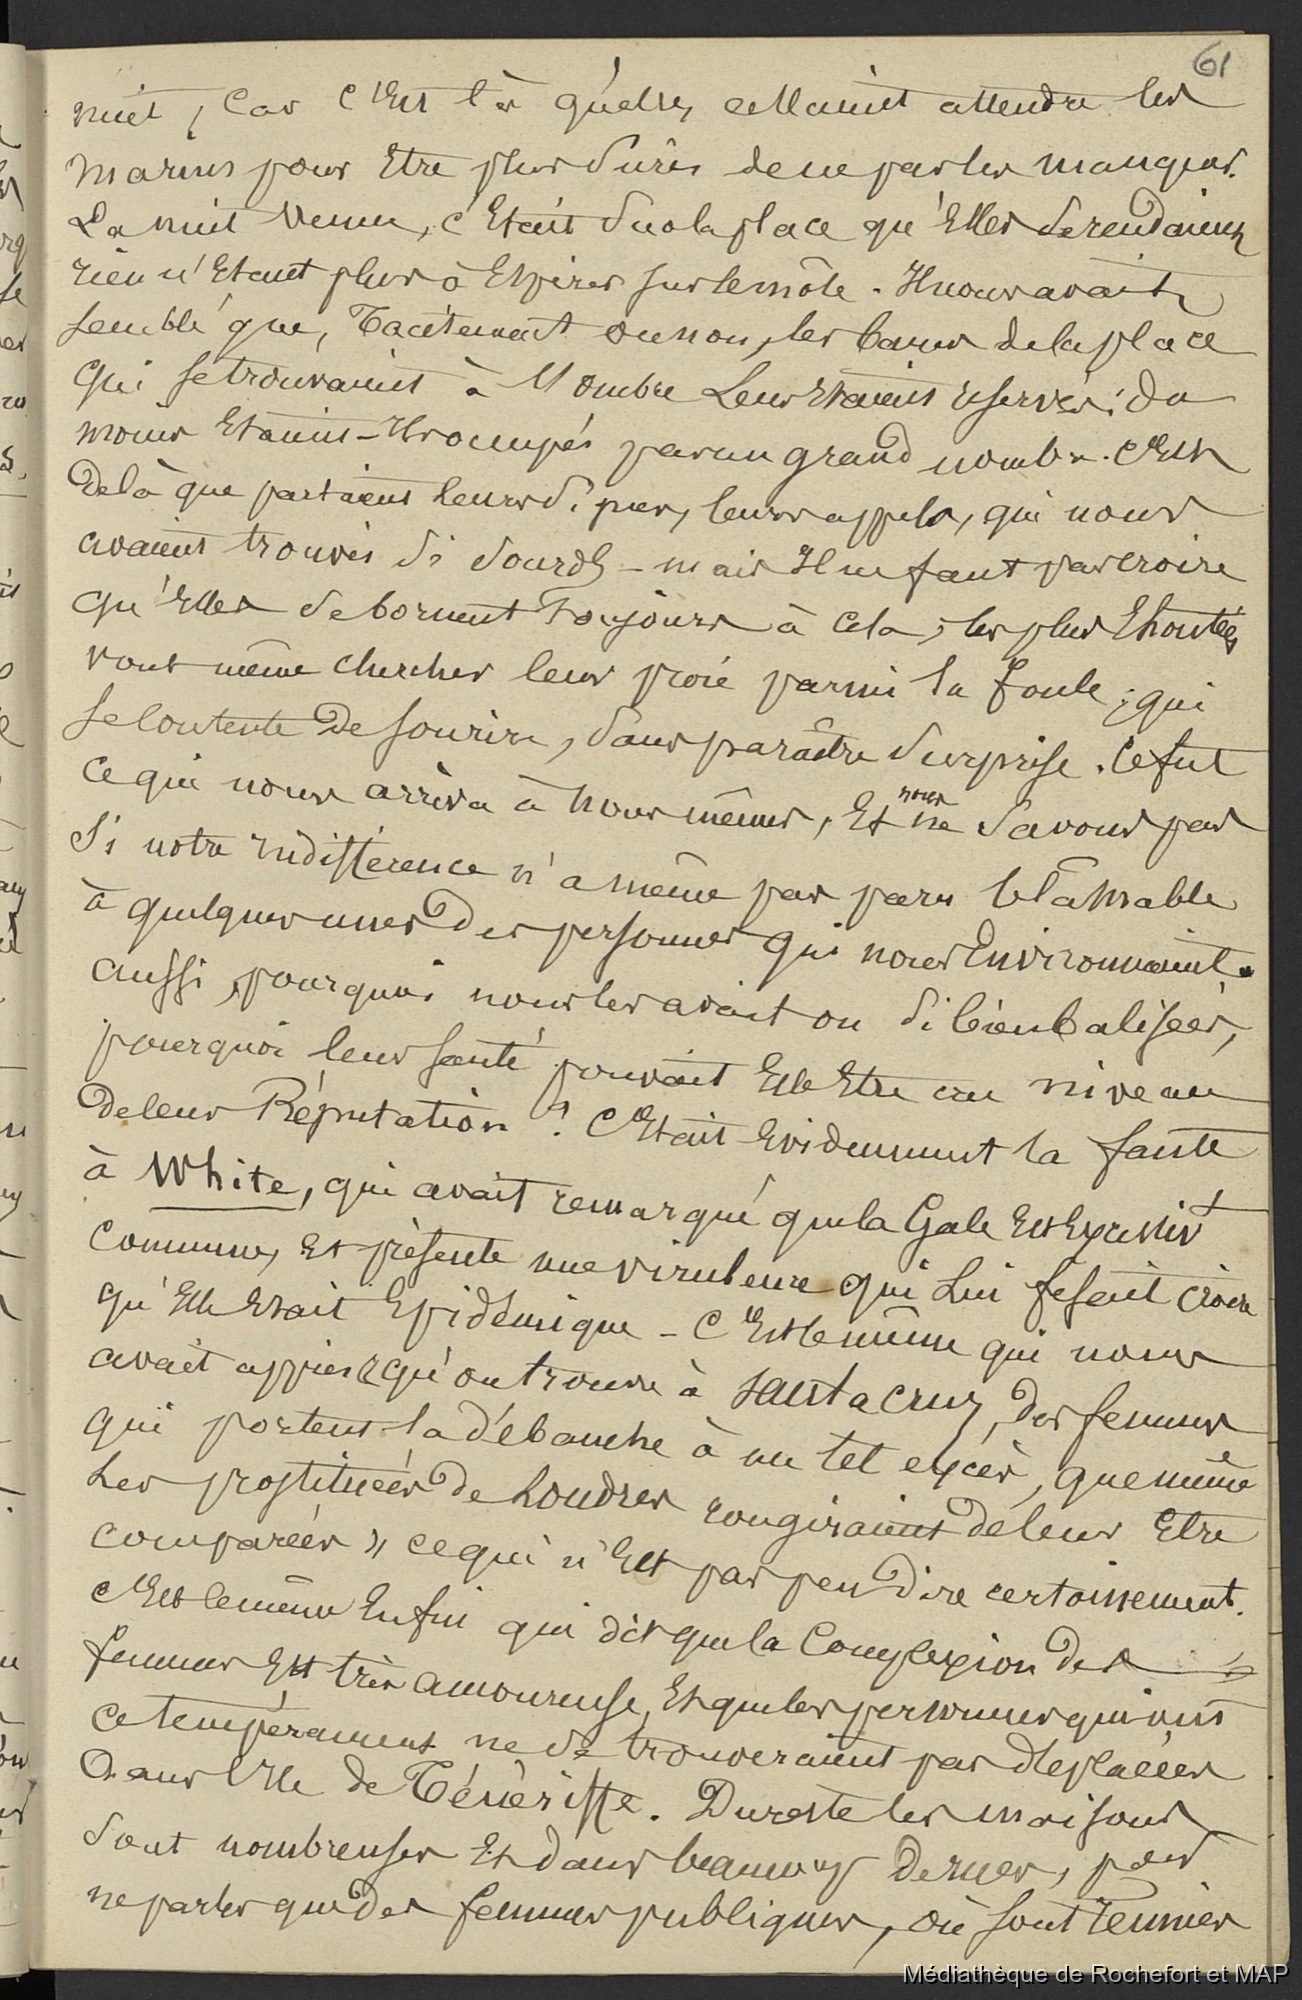 61
nuit, car c'est là qu'elles allaient attendre les
marins pour Etre plus sûres de ne pas les manquer.
La nuit venue, c'Etait sur la place qu'Elles se rendaient
rien n'Etant plus à Espérer sur le môle. Il nous avait
semblé que, Tacitement ou non, les bancs de la place
qui se trouvaient à l'ombre Leur Etaient réservés; du
moins Etaient-Ils occupés par un grand nombre. C'Est
de là que partaient leurs si pres, leurs appels, qui nous
avaient trouvés si sourds - mais Il ne faut pas croire
qu'Elles se bornent Toujours à cela; les plus Ehontées
vont même chercher leur proie parmi la foule; qui
se contente de sourire, sans paraître surprise. Ce fut
ce qui nous arriva à nous mêmes, Et nous ne savons pas
si notre indifférence n'a même pas paru blâmable
à quelques unes des personnes qui nous Environnaient.
aussi, pourquoi nous les avait on si bien balisées,
pourquoi leur santé pouvait Elle Etre au niveau
de leur Réputation? C'Etait Evidemment la faute
à White, qui avait remarqué que la Gale Est
commune, Et présente une virulence qui Lui fesait croire
qu'Elle Etait Epidémique - C'Est le même qui nous
avait appris qu'on trouve à Santa Cruz, des femmes
qui portent la débauche à un tel excès, que même
les prostituées de Londres rougiraient de leur Etre
comparées » ce qui n'Est pas peu dire certainement.
C'Est le même Enfin qui dit que la Complexion des
femmes Est très amoureuse, Et que les personnes qui ont
ce tempérament ne se trouveraient pas déplacées
Dans l'Ile de Ténériffe. Du reste les maisons
sont nombreuses Et dans beaucoup de rues, pour
ne parler que des femmes publiques, où sont réunies
Médiathèque de Rochefort et MAP